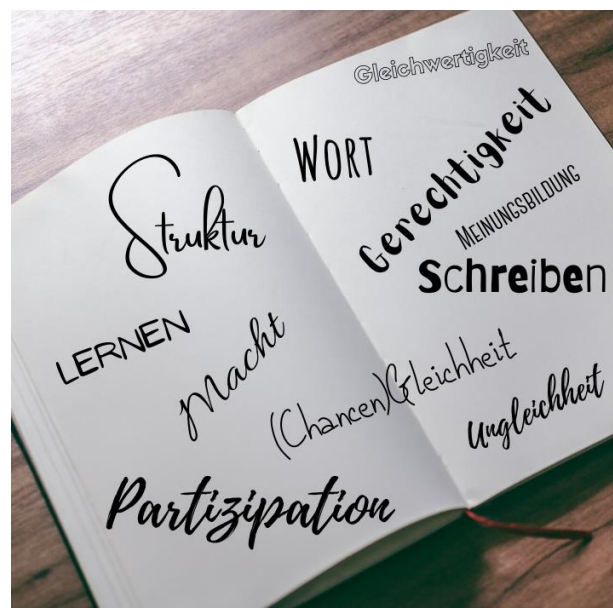 Gleichwertigkeit
Wort
Gerechtigkeit
Struktur
Meinungsbildung
Schreiben
LERNEN
Macht
(Chancen)Gleichheit
Ungleichheit
Partizipation